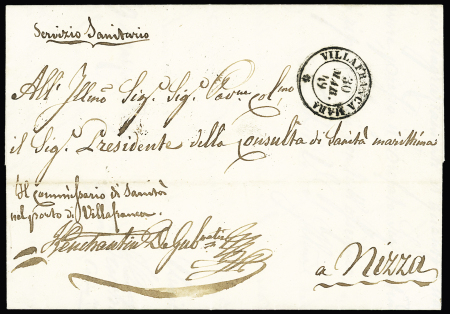 Servizio Sanitario
VILLAFRANCA MARA
30
MAR.
49
All' Illmo Sigr. Sigr. Pavne colmo
il Sigr. Presidente della Consulta di Sanità marittima
Il commissario di Sanità
nel porto di Villafranca.
De
a Nizza